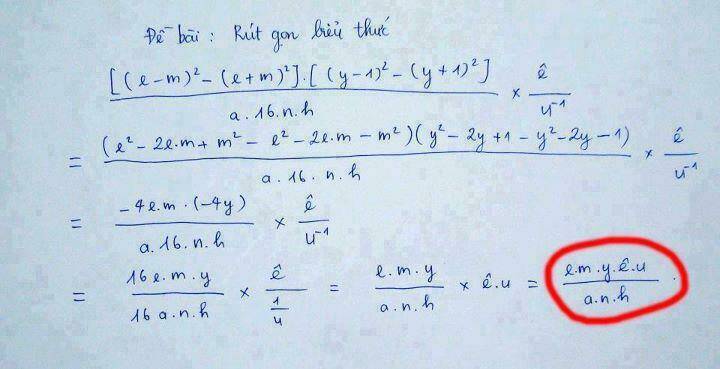 Đề bài : Rút gọn biểu thức
[(e-m)² - (e+m)²].[(y-1)² - (y+1)²] / a.16.n.h × ê / u⁻¹
= (e² - 2e.m + m² - e² - 2e.m - m²)(y² - 2y + 1 - y² - 2y - 1) / a.16.n.h × ê / u⁻¹
= -4e.m.(-4y) / a.16.n.h × ê / u⁻¹
= 16e.m.y / 16a.n.h × ê / (1/u) = e.m.y / a.n.h × ê.u = e.m.y.ê.u / a.n.h .